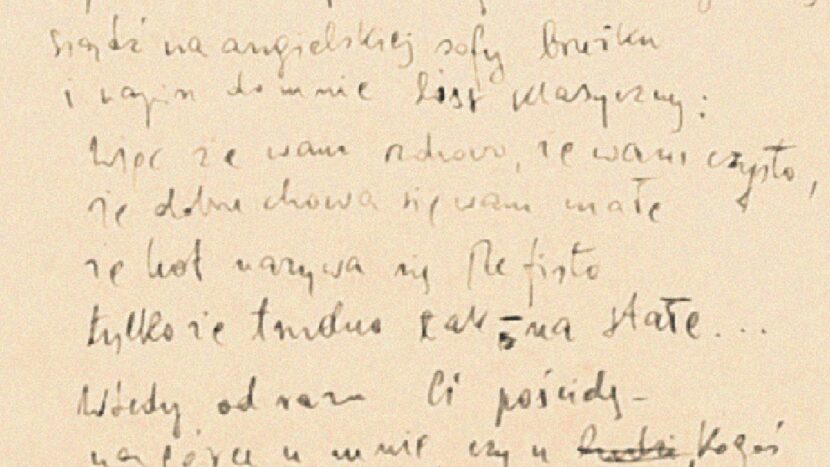 siądź na angielskiej sofy brzeżku
i napisz do mnie list klasyczny:
Więc że wam zdrowo, że wam czysto,
że dobrze chowa się wam małe
że kot nazywa się Mefisto
tylko że trudno tak na stałe...
Wtedy od razu Ci pościelę –
na górce u mnie czy u kogoś